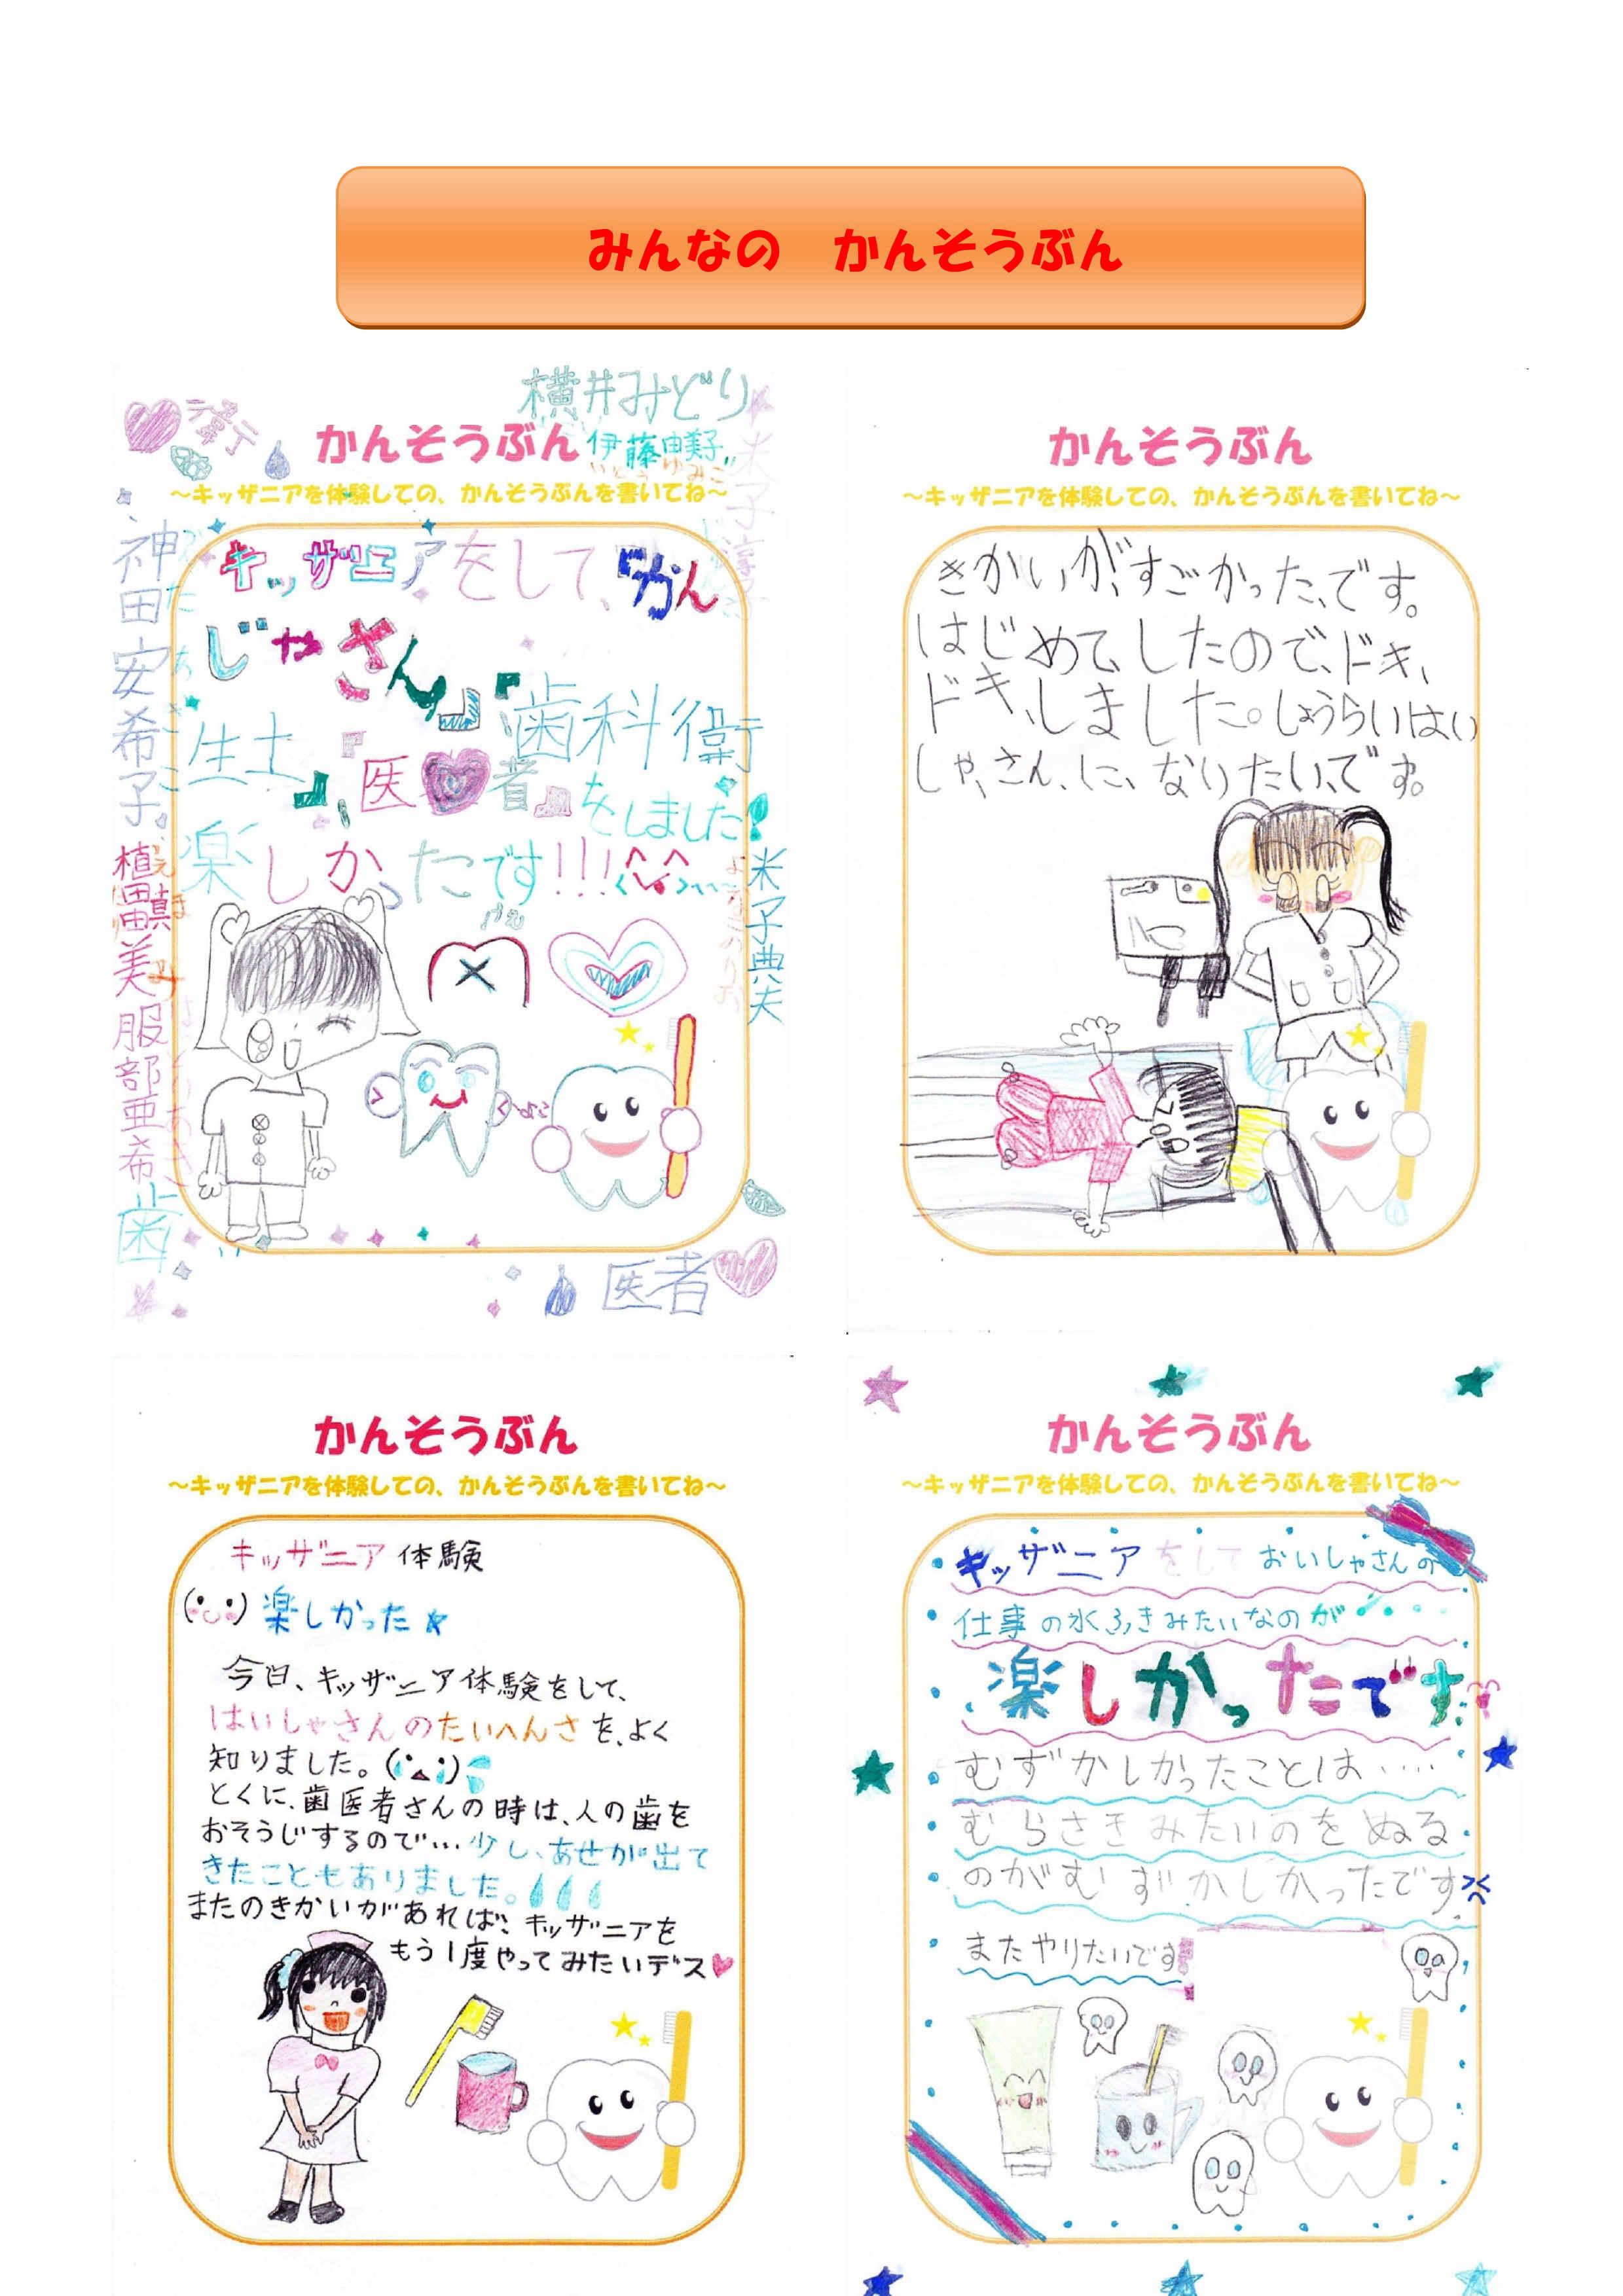 みんなの　かんそうぶん
横井みどり
かんそうぶん
伊藤由美子
いとうゆみこ
～キッザニアを体験しての、かんそうぶんを書いてね～
神田安希子
植田真美
服部亜希
歯
キッザニアをして、『かん
じゃさん』『歯科衛
生士』『医者』をしました!
楽しかったです!!!
米子典夫
医者
かんそうぶん
～キッザニアを体験しての、かんそうぶんを書いてね～
きかいが、すごかった、です。
はじめて、したので、ドキ、
ドキ、しました。しょうらいはい
しゃ、さん、に、なりたい、です。
かんそうぶん
～キッザニアを体験しての、かんそうぶんを書いてね～
キッザニア体験
楽しかった
今日、キッザニア体験をして、
はいしゃさんのたいへんさを、よく
知りました。
とくに、歯医者さんの時は、人の歯を
おそうじするので…少し、あせが出て
きたこともありました。
またのきかいがあれば、キッザニアを
もう1度やってみたいデス
かんそうぶん
～キッザニアを体験しての、かんそうぶんを書いてね～
キッザニアをしておいしゃさんの
仕事の水ふきみたいなのが
楽しかったです
むずかしかったことは……
むらさきみたいのをぬる
のがむずかしかったです
またやりたいです